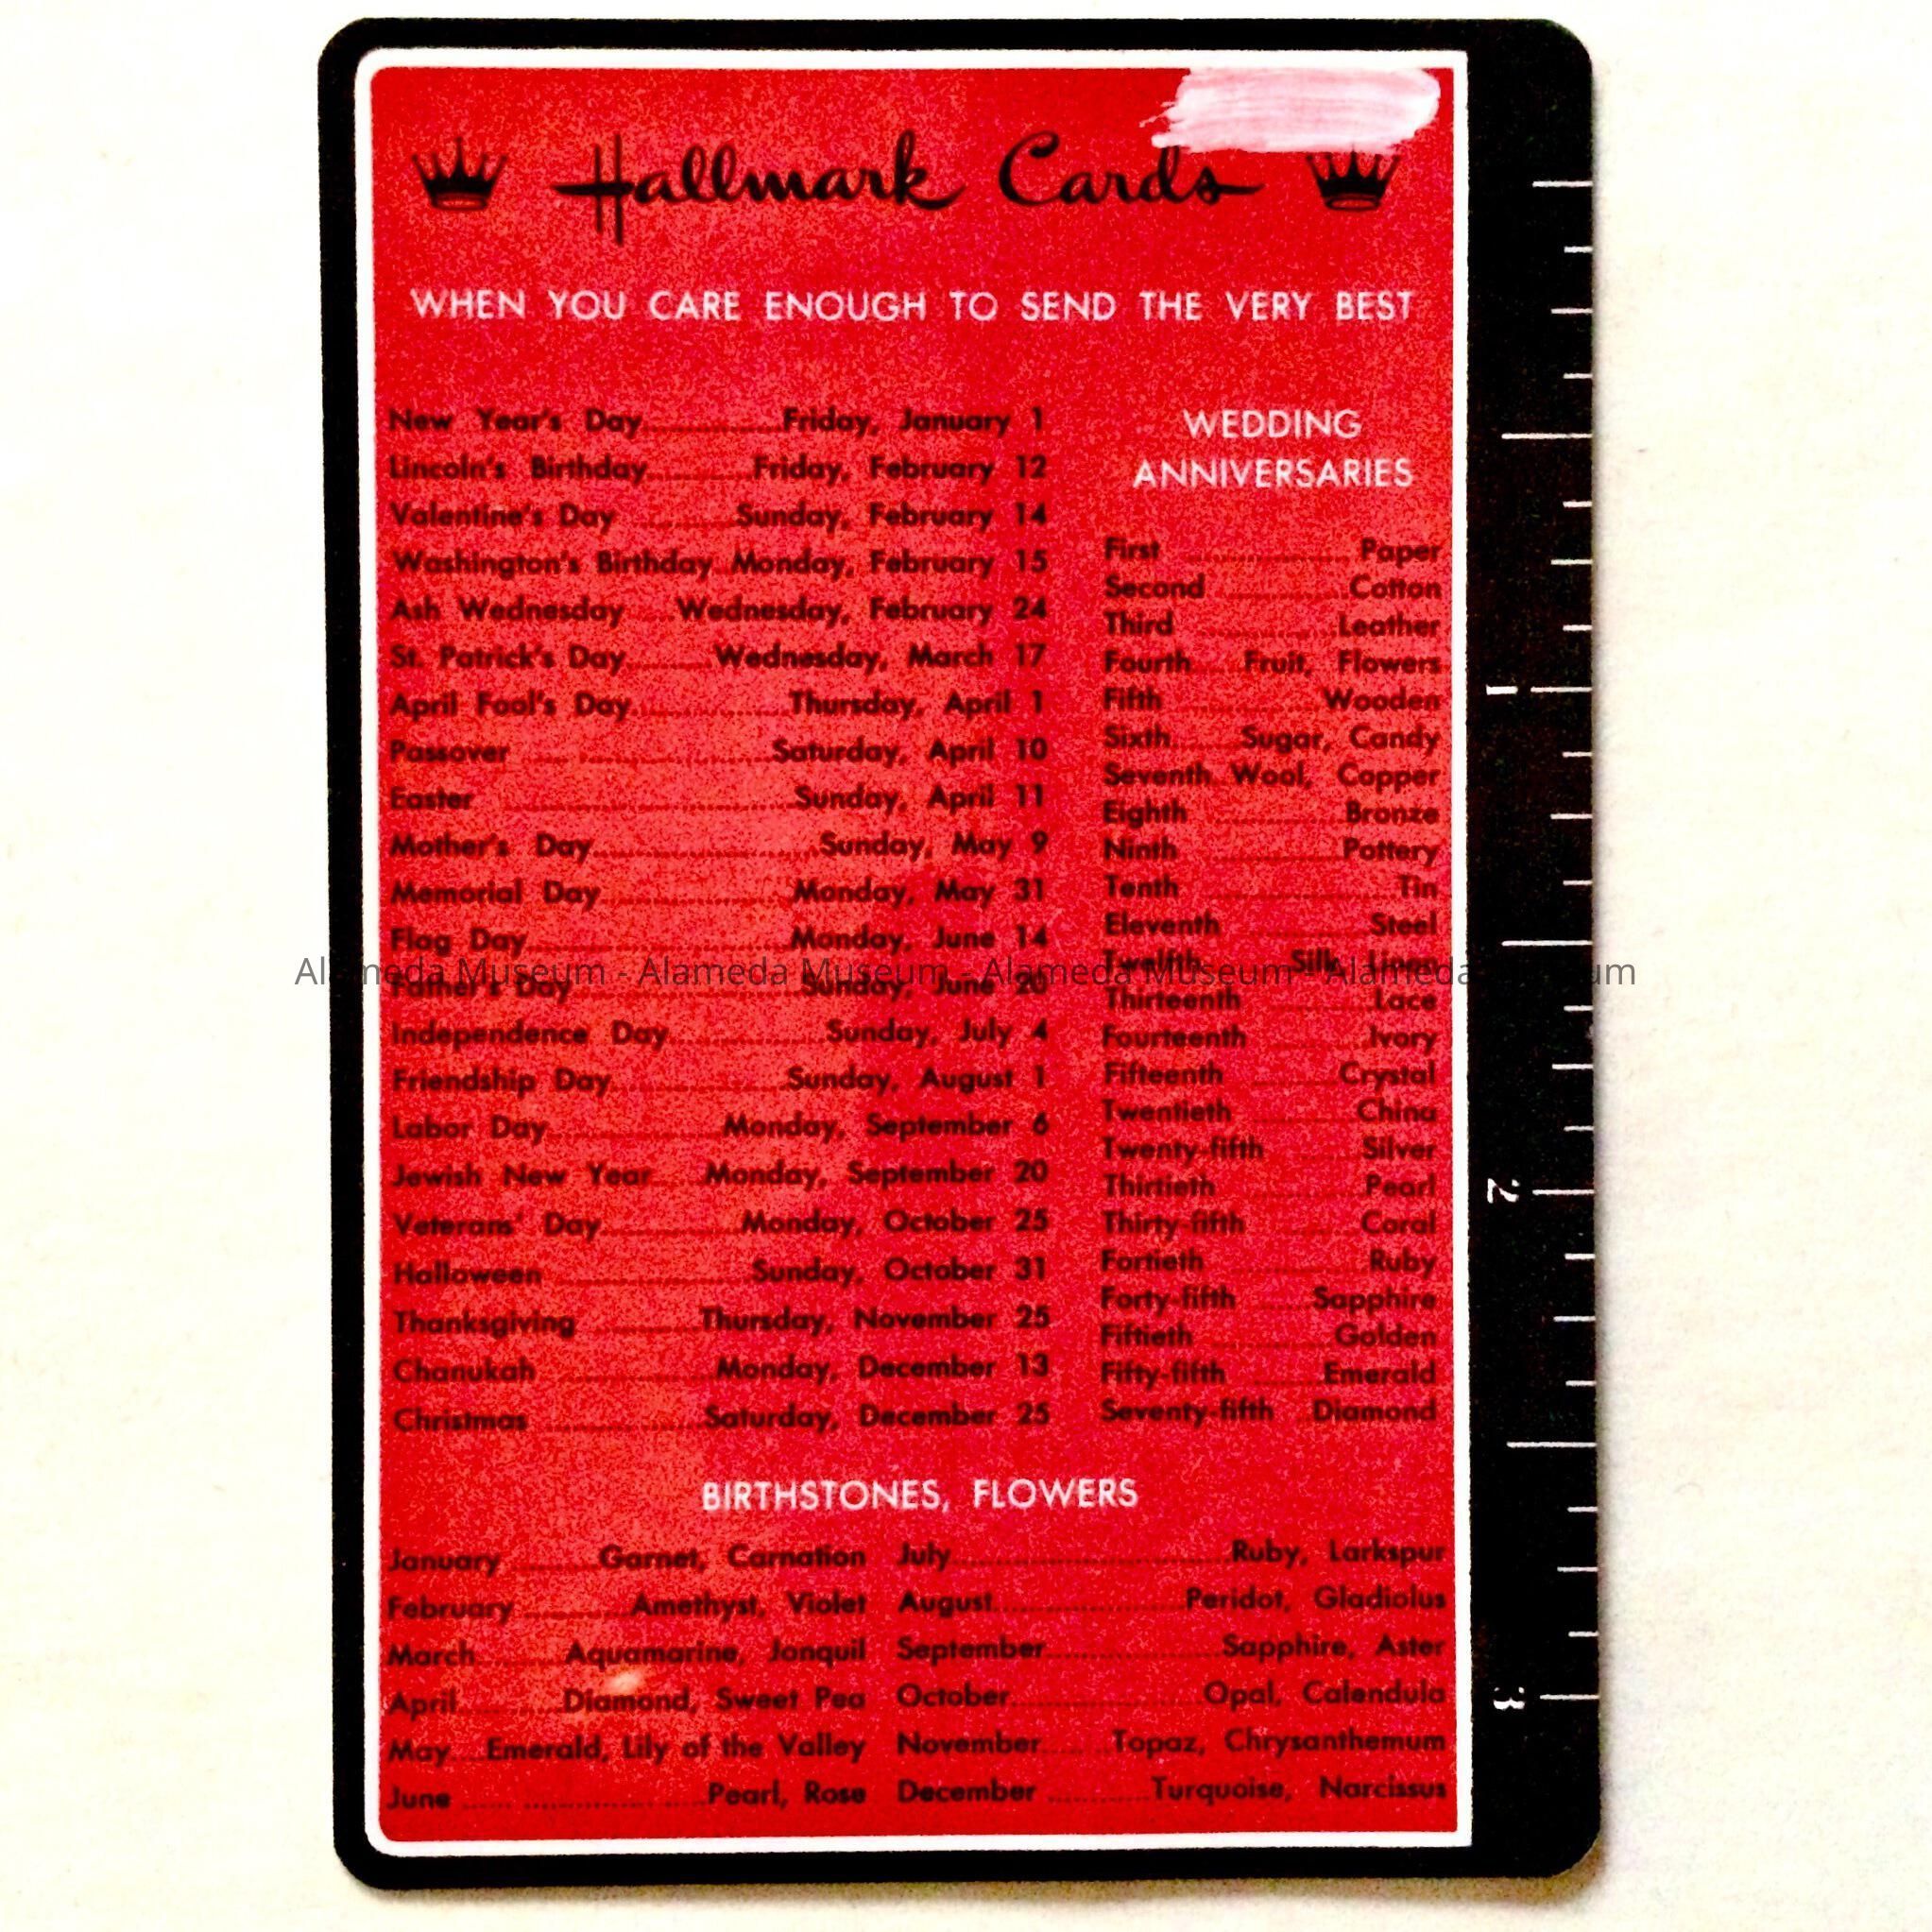 Hallmark Cards
WHEN YOU CARE ENOUGH TO SEND THE VERY BEST
New Year's Day Friday, January 1
Lincoln's Birthday Friday, February 12
Valentine's Day Sunday, February 14
Washington's Birthday Monday, February 15
Ash Wednesday Wednesday, February 24
St. Patrick's Day Wednesday, March 17
April Fool's Day Thursday, April 1
Passover Saturday, April 10
Easter Sunday, April 11
Mother's Day Sunday, May 9
Memorial Day Monday, May 31
Flag Day Monday, June 14
Father's Day Sunday, June 20
Independence Day Sunday, July 4
Friendship Day Sunday, August 1
Labor Day Monday, September 6
Jewish New Year Monday, September 20
Veterans' Day Monday, October 25
Halloween Sunday, October 31
Thanksgiving Thursday, November 25
Chanukah Monday, December 13
Christmas Saturday, December 25
WEDDING
ANNIVERSARIES
First Paper
Second Cotton
Third Leather
Fourth Fruit, Flowers
Fifth Wooden
Sixth Sugar, Candy
Seventh Wool, Copper
Eighth Bronze
Ninth Pottery
Tenth Tin
Eleventh Steel
Twelfth Silk, Linen
Thirteenth Lace
Fourteenth Ivory
Fifteenth Crystal
Twentieth China
Twenty-fifth Silver
Thirtieth Pearl
Thirty-fifth Coral
Fortieth Ruby
Forty-fifth Sapphire
Fiftieth Golden
Fifty-fifth Emerald
Seventy-fifth Diamond
BIRTHSTONES, FLOWERS
January Garnet, Carnation
February Amethyst, Violet
March Aquamarine, Jonquil
April Diamond, Sweet Pea
May Emerald, Lily of the Valley
June Pearl, Rose
July Ruby, Larkspur
August Peridot, Gladiolus
September Sapphire, Aster
October Opal, Calendula
November Topaz, Chrysanthemum
December Turquoise, Narcissus
1
2
3
Alameda Museum - Alameda Museum - Alameda Museum - Alameda Museum